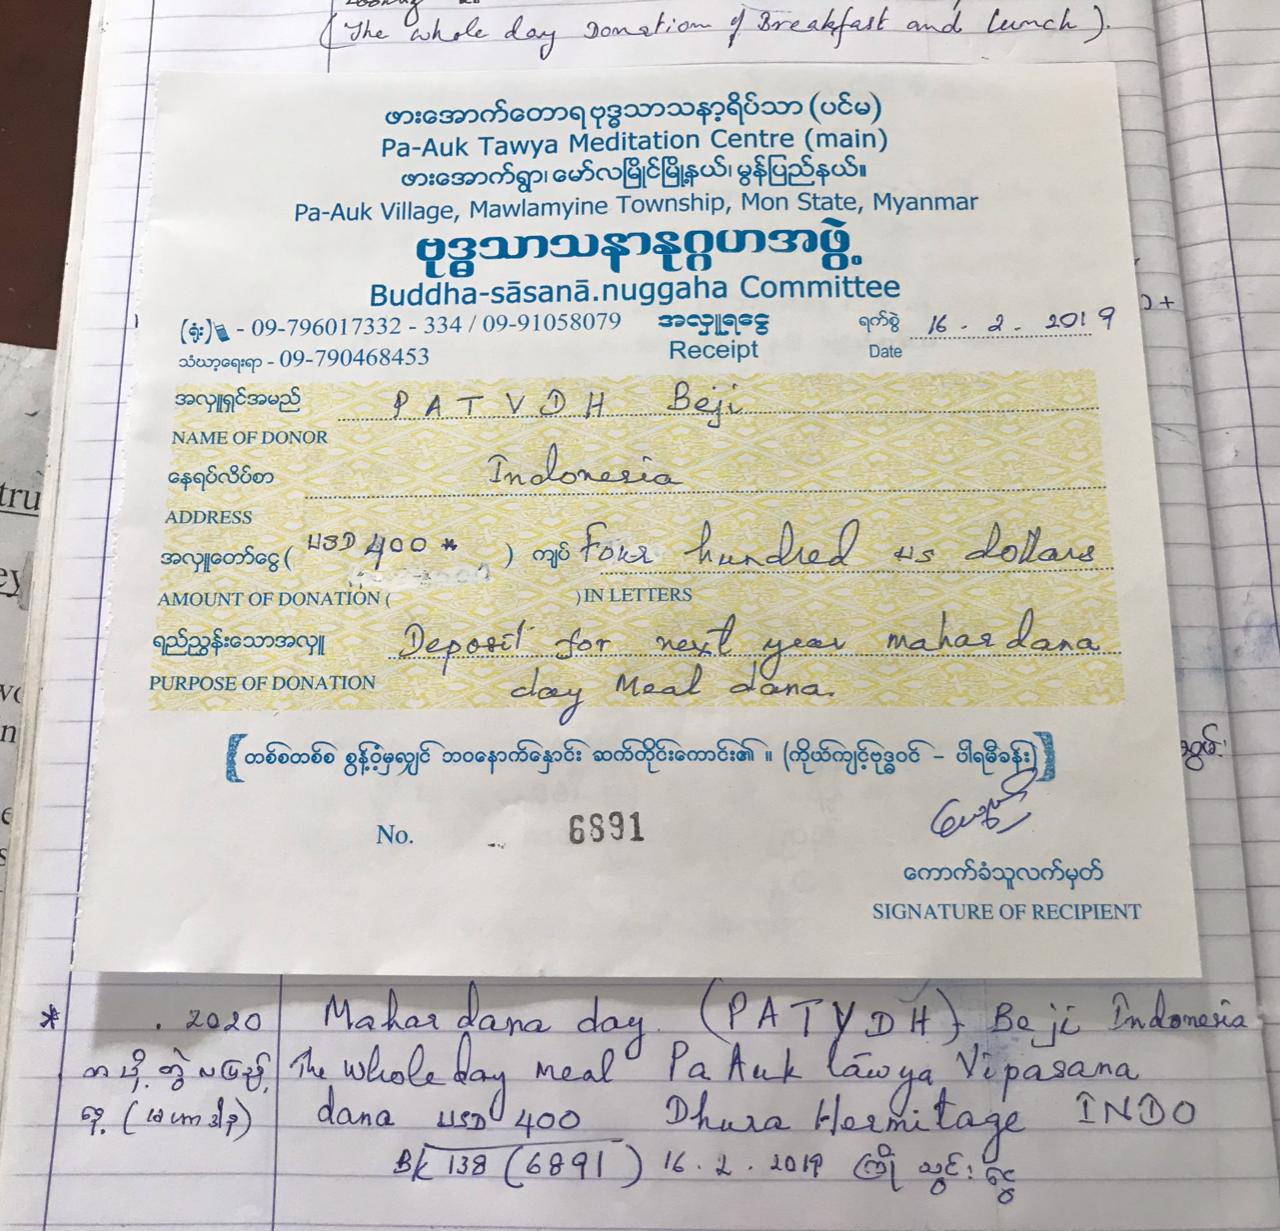 (The whole day Donation of Breakfast and Lunch).
ဖားအောက်တောရဗုဒ္ဓသာသနာ့ရိပ်သာ (ပင်မ)
Pa-Auk Tawya Meditation Centre (main)
ဖားအောက်ရွာ၊ မော်လမြိုင်မြို့နယ်၊ မွန်ပြည်နယ်။
Pa-Auk Village, Mawlamyine Township, Mon State, Myanmar
ဗုဒ္ဓသာသနာနုဂ္ဂဟအဖွဲ့
Buddha-sāsanā.nuggaha Committee
(ရုံး) - 09-796017332 - 334 / 09-91058079 အလှူရငွေ ရက်စွဲ 16 . 2 . 2019
သံဃာ့ရေးရာ - 09-790468453 Receipt Date
အလှူရှင်အမည် PATVDH Beji
NAME OF DONOR
နေရပ်လိပ်စာ Indonesia
ADDRESS
အလှူတော်ငွေ ( USD 400 * ) ကျပ် Four hundred us dollars
AMOUNT OF DONATION ( ) IN LETTERS
ရည်ညွှန်းသောအလှူ Deposit for next year mahar dana
PURPOSE OF DONATION day Meal dana.
【တစ်စတစ်စ စွန့်ဝံ့မှလျှင် ဘဝနောက်နှောင်း ဆက်တိုင်းကောင်း၏ ။ (ကိုယ်ကျင့်ဗုဒ္ဓဝင် – ပါရမီခန်း)】
No. 6891
ကောက်ခံသူလက်မှတ်
SIGNATURE OF RECIPIENT
* . 2020 Mahar dana day (PATVDH) Beji Indonesia
တပို့တွဲလပြည့် The whole day meal Pa Auk Tāwya Vipasana
နေ့ (မဟာဒါန) dana USD 400 Dhura Hermitage INDO
Bk 138 (6891) 16 . 2 . 2019 ကြိုသွင်းငွေ